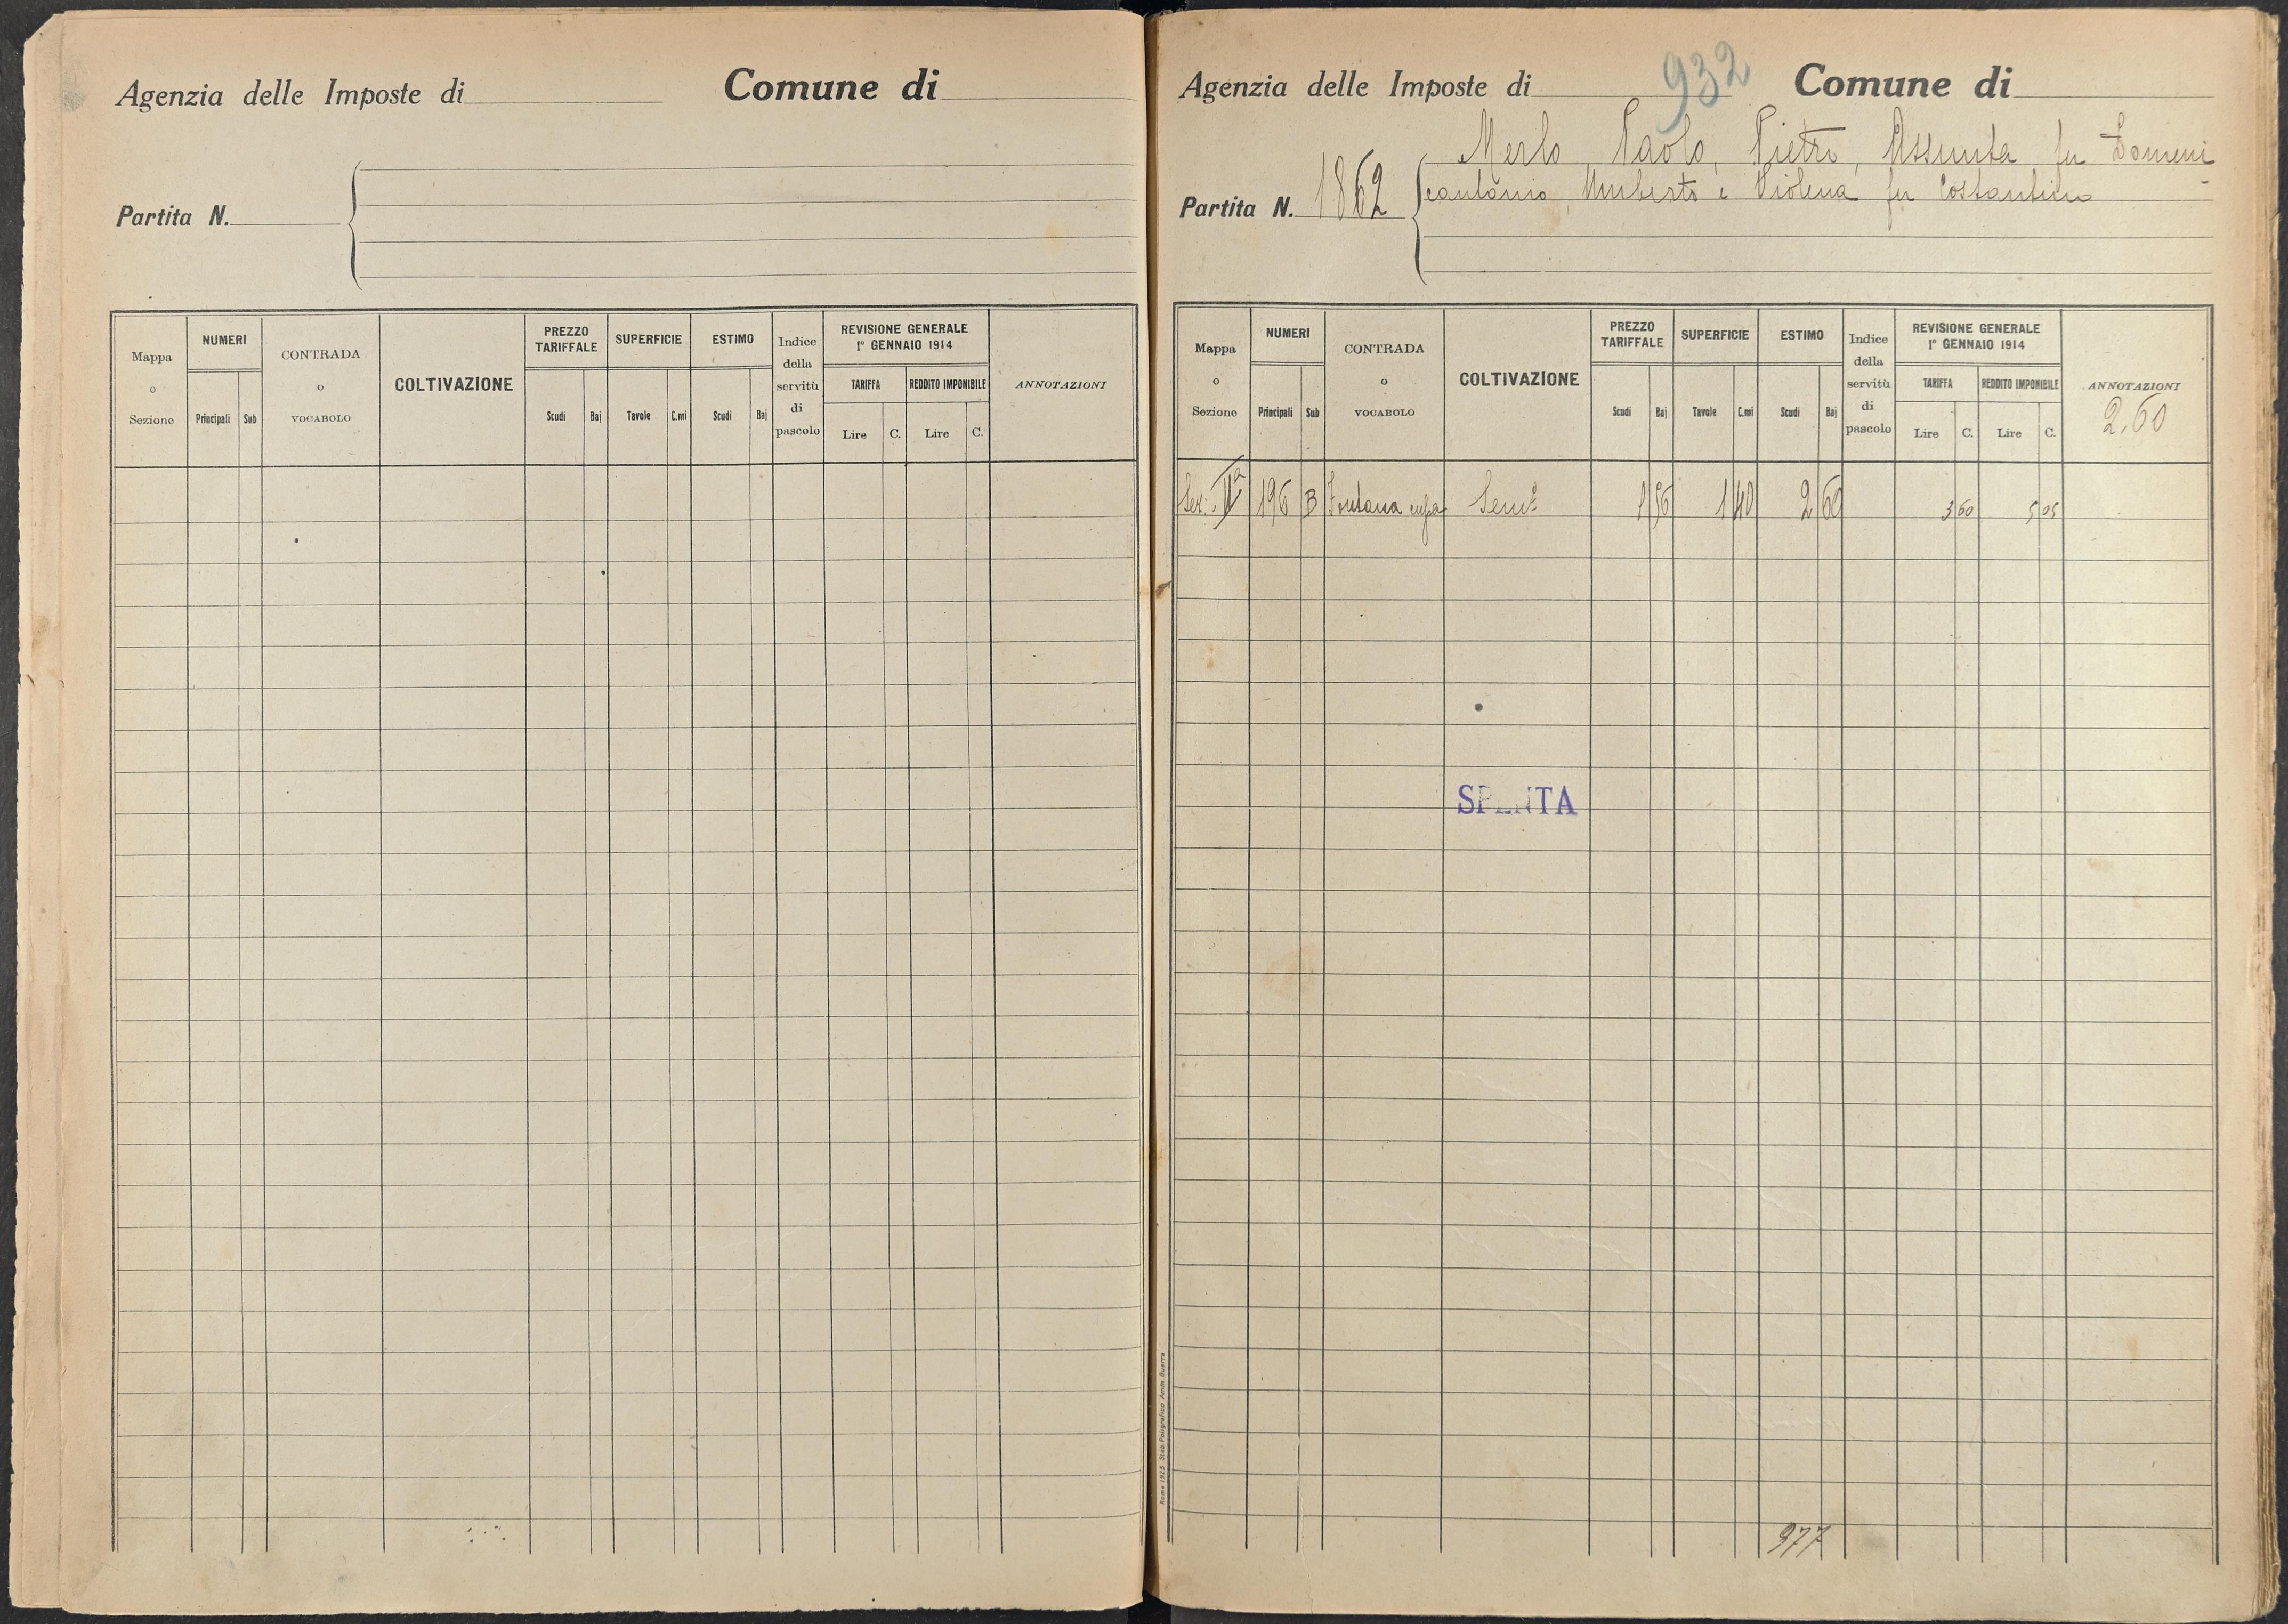 Agenzia delle Imposte di Comune di
Partita N.
Mappa o Sezione
NUMERI
Principali Sub
CONTRADA o VOCABOLO
COLTIVAZIONE
PREZZO TARIFFALE
Scudi Baj
SUPERFICIE
Tavole C.mi
ESTIMO
Scudi Baj
Indice della servitù di pascolo
REVISIONE GENERALE
1° GENNAIO 1914
TARIFFA REDDITO IMPONIBILE
Lire C. Lire C.
ANNOTAZIONI
932
Agenzia delle Imposte di Comune di
Merlo Paolo, Pietro, Assunta fu Domeni
Partita N. 1862
cantonio Umberto e Violena fu Costantino
Mappa o Sezione
NUMERI
Principali Sub
CONTRADA o VOCABOLO
COLTIVAZIONE
PREZZO TARIFFALE
Scudi Baj
SUPERFICIE
Tavole C.mi
ESTIMO
Scudi Baj
Indice della servitù di pascolo
REVISIONE GENERALE
1° GENNAIO 1914
TARIFFA REDDITO IMPONIBILE
Lire C. Lire C.
ANNOTAZIONI
2.60
Sez. 196 B Fontana Sem° 1 40 2 60 3 60 5 05
SPENTA
Roma 1925 Stab. Poligrafico Amm. Guerra
977